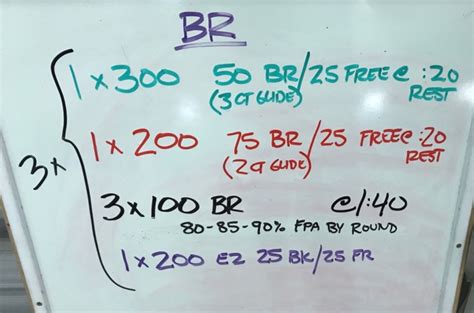 BR
1 x 300 50 BR/25 FREE @ :20
(3 CT GLIDE) REST
3x
1 x 200 75 BR/25 FREE@ :20
(2 CT GLIDE) REST
3 x 100 BR @1:40
80-85-90% FPA BY ROUND
1 x 200 EZ 25 BK/25 FR